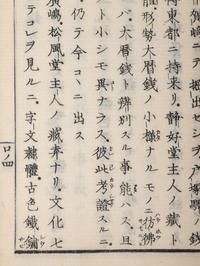 府東都ニ持来リ靜好堂主人ノ蔵ト
形㔟大暦錢ノ小様ナルモノニ仿彿
バ大暦錢ト辨別スル事能ハズ且
ト小シモ異ナラス彼此考證スルニ
仍テ今コヽニ出ス
嶋松風堂主人ノ蔵弆ナリ文化七
テコレヲ見ルニ字文隷體古色銕鏽
ロノ四